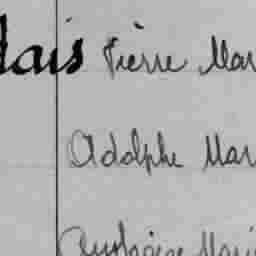 dais Pierre Mar
Adolphe Mar
Ambroise Marie